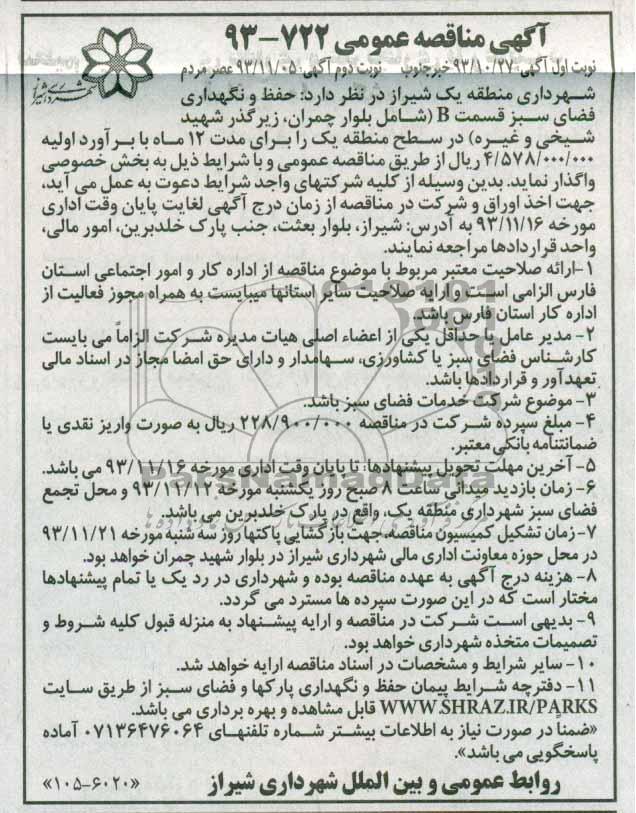 آگهی مناقصه عمومی ۷۲۲-۹۳
نوبت اول آگهی: ۹۳/۱۰/۲۷ خبرجنوب نوبت دوم آگهی: ۹۳/۱۱/۰۵ عصر مردم
شهرداری منطقه یک شیراز در نظر دارد: حفظ و نگهداری
فضای سبز قسمت B (شامل بلوار چمران، زیرگذر شهید
شیخی و غیره) در سطح منطقه یک را برای مدت ۱۲ ماه با برآورد اولیه
۴/۵۷۸/۰۰۰/۰۰۰ ریال از طریق مناقصه عمومی و با شرایط ذیل به بخش خصوصی
واگذار نماید. بدین وسیله از کلیه شرکتهای واجد شرایط دعوت به عمل می آید،
جهت اخذ اوراق و شرکت در مناقصه از زمان درج آگهی لغایت پایان وقت اداری
مورخه ۹۳/۱۱/۱۶ به آدرس: شیراز، بلوار بعثت، جنب پارک خلدبرین، امور مالی،
واحد قراردادها مراجعه نمایند.
۱-ارائه صلاحیت معتبر مربوط با موضوع مناقصه از اداره کار و امور اجتماعی استان
فارس الزامی است و ارایه صلاحیت سایر استانها میبایست به همراه مجوز فعالیت از
اداره کار استان فارس باشد.
۲- مدیر عامل یا حداقل یکی از اعضاء اصلی هیات مدیره شرکت الزاماً می بایست
کارشناس فضای سبز یا کشاورزی، سهامدار و دارای حق امضا مجاز در اسناد مالی
تعهدآور و قراردادها باشد.
۳- موضوع شرکت خدمات فضای سبز باشد.
۴- مبلغ سپرده شرکت در مناقصه ۲۲۸/۹۰۰/۰۰۰ ریال به صورت واریز نقدی یا
ضمانتنامه بانکی معتبر.
۵- آخرین مهلت تحویل پیشنهادها: تا پایان وقت اداری مورخه ۹۳/۱۱/۱۶ می باشد.
۶- زمان بازدید میدانی ساعت ۸ صبح روز یکشنبه مورخه ۹۳/۱۱/۱۲ و محل تجمع
فضای سبز شهرداری منطقه یک، واقع در پارک خلدبرین می باشد.
۷-زمان تشکیل کمیسیون مناقصه، جهت بازگشایی پاکتها روز سه شنبه مورخه ۹۳/۱۱/۲۱
در محل حوزه معاونت اداری مالی شهرداری شیراز در بلوار شهید چمران خواهد بود.
۸- هزینه درج آگهی به عهده مناقصه بوده و شهرداری در رد یک یا تمام پیشنهادها
مختار است که در این صورت سپرده ها مسترد می گردد.
۹- بدیهی است شرکت در مناقصه و ارایه پیشنهاد به منزله قبول کلیه شروط و
تصمیمات متخذه شهرداری خواهد بود.
۱۰- سایر شرایط و مشخصات در اسناد مناقصه ارایه خواهد شد.
۱۱- دفترچه شرایط پیمان حفظ و نگهداری پارکها و فضای سبز از طریق سایت
WWW.SHRAZ.IR/PARKS قابل مشاهده و بهره برداری می باشد.
«ضمناً در صورت نیاز به اطلاعات بیشتر شماره تلفنهای ۰۷۱۳۶۴۷۶۰۶۴ آماده
پاسخگویی می باشد».
روابط عمومی و بین الملل شهرداری شیراز «۶۰۲۰-۱۰۵»
شهرداری شیراز
ParsNamadData